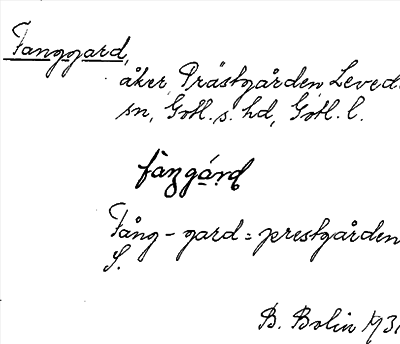 Fanggard,
åker, Prästgården Levede
sn, Gotl. s. hd, Gotl. l.
fàŋgárd
Fång - gard = prestgården
S.
B. Bolin 1931